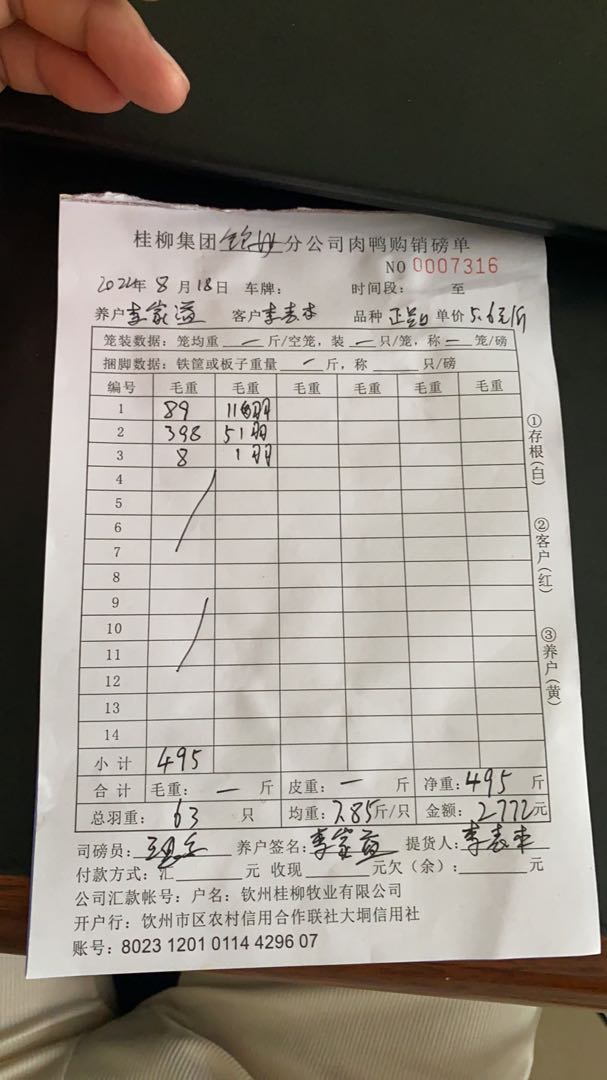 桂柳集团钦州分公司肉鸭购销磅单
NO 0007316
2022年 8 月 18日 车牌: 时间段: 至
养户李家益 客户李表丰 品种 正品 单价5.6元/斤
笼装数据: 笼均重 一 斤/空笼, 装 一 只/笼, 称 一 笼/磅
捆脚数据: 铁筐或板子重量 一 斤, 称 只/磅
编号 毛重 毛重 毛重 毛重 毛重 毛重
1 89 11羽
2 398 51羽
3 8 1羽
4
5
6
7
8
9
10
11
12
13
14
小计 495
合计 毛重: 一 斤 皮重: 一 斤 净重: 495 斤
总羽重: 63 只 均重: 7.85斤/只 金额: 2772元
司磅员: 养户签名: 李家益 提货人: 李表丰
付款方式: 汇 元 收现 元欠(余): 元
公司汇款帐号: 户名: 钦州桂柳牧业有限公司
开户行: 钦州市区农村信用合作联社大垌信用社
账号: 8023 1201 0114 4296 07
①存根(白)
②客户(红)
③养户(黄)